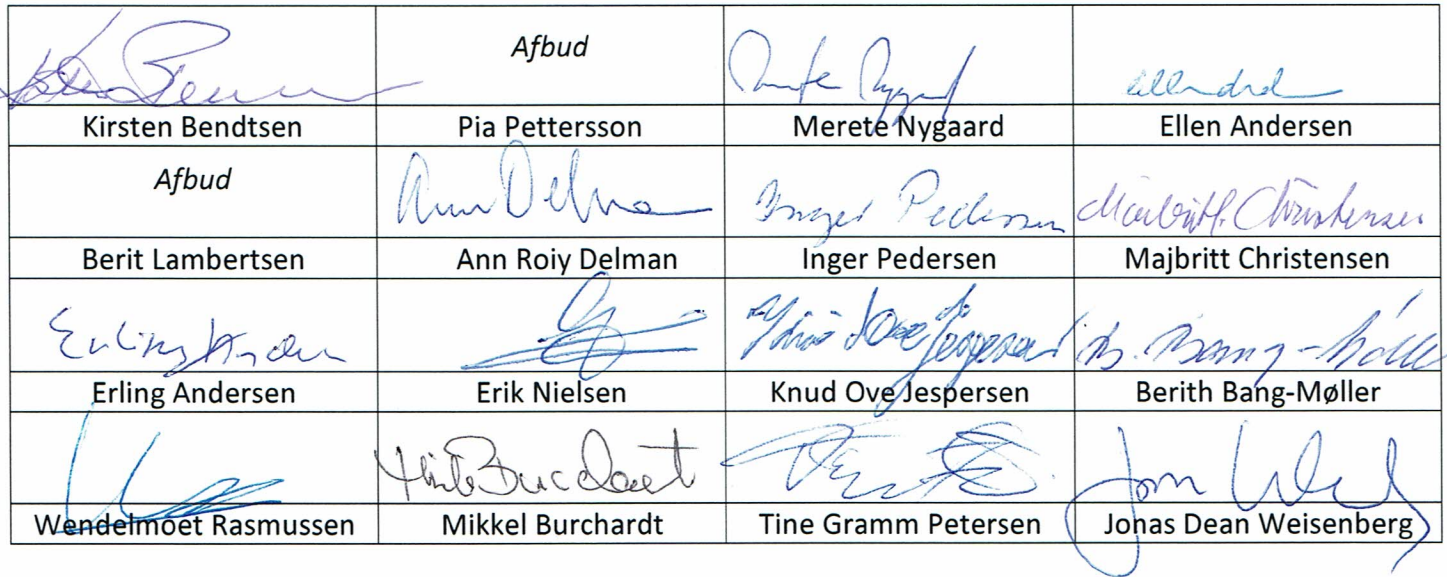 Afbud
Kirsten Bendtsen Pia Pettersson Merete Nygaard Ellen Andersen
Afbud Ann Delman Inger Pedersen Majbritt Christensen
Berit Lambertsen Ann Roiy Delman Inger Pedersen Majbritt Christensen
Erling Andersen B. Bang-Møller
Erling Andersen Erik Nielsen Knud Ove Jespersen Berith Bang-Møller
Wendelmoet Rasmussen Mikkel Burchardt Tine Gramm Petersen Jonas Dean Weisenberg